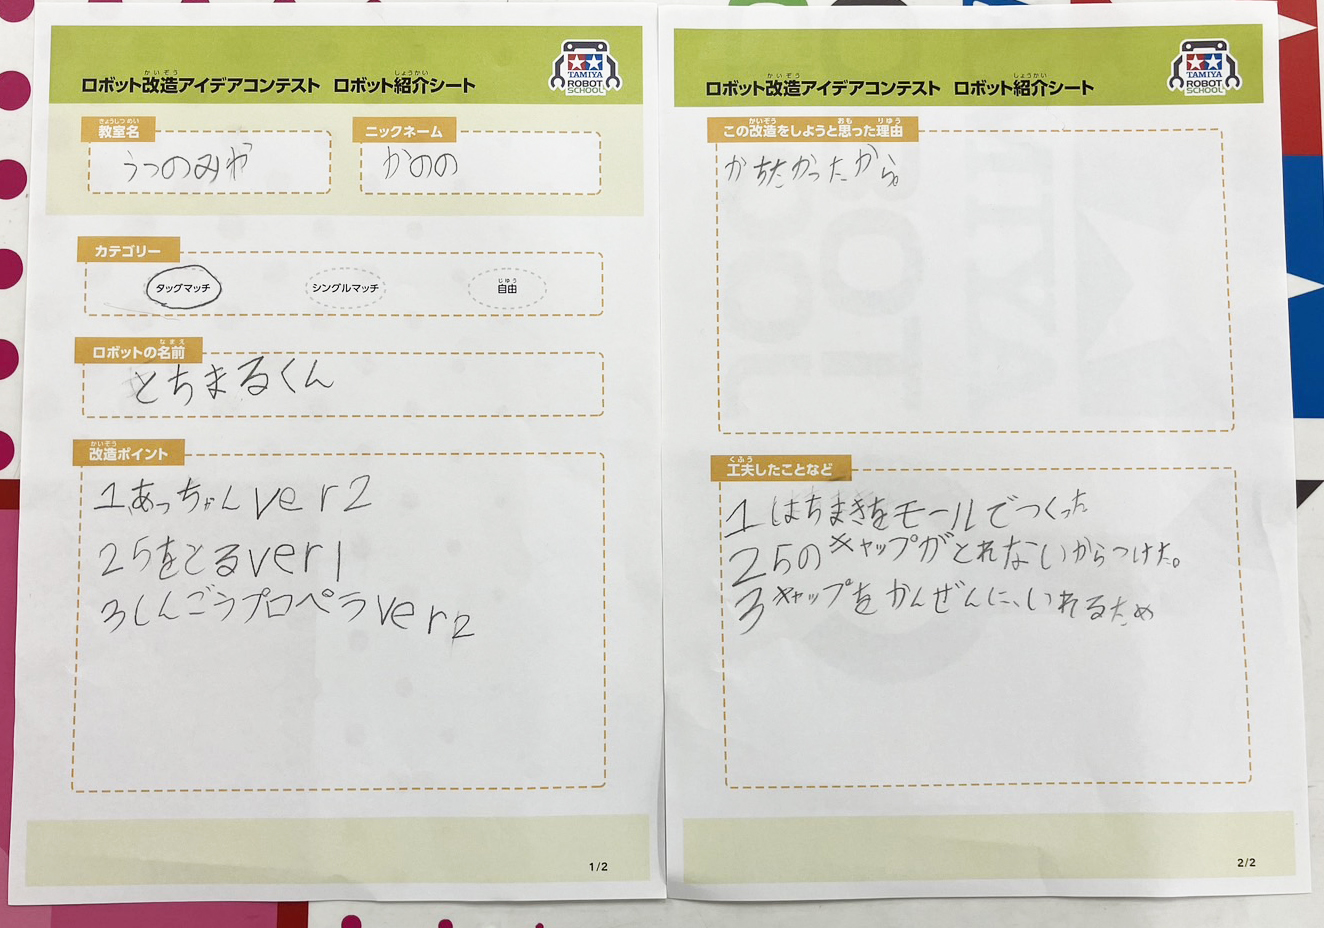 ロボット改造アイデアコンテスト ロボット紹介シート
かいぞう
しょうかい
TAMIYA
ROBOT
SCHOOL
教室名
きょうしつめい
うつのみや
ニックネーム
かのの
カテゴリー
タッグマッチ
シングルマッチ
自由
じゆう
ロボットの名前
なまえ
とちまるくん
改造ポイント
かいぞう
1.あっちゃんver2
25をとるver1
3しんごうプロペラver2
1/2
ロボット改造アイデアコンテスト ロボット紹介シート
かいぞう
しょうかい
TAMIYA
ROBOT
SCHOOL
この改造をしようと思った理由
かいぞう
おも
りゆう
かちたかったから。
工夫したことなど
くふう
1はちまきをモールでつくった
25のキャップがとれないからつけた。
3キャップをかんぜんに、いれるため
2/2